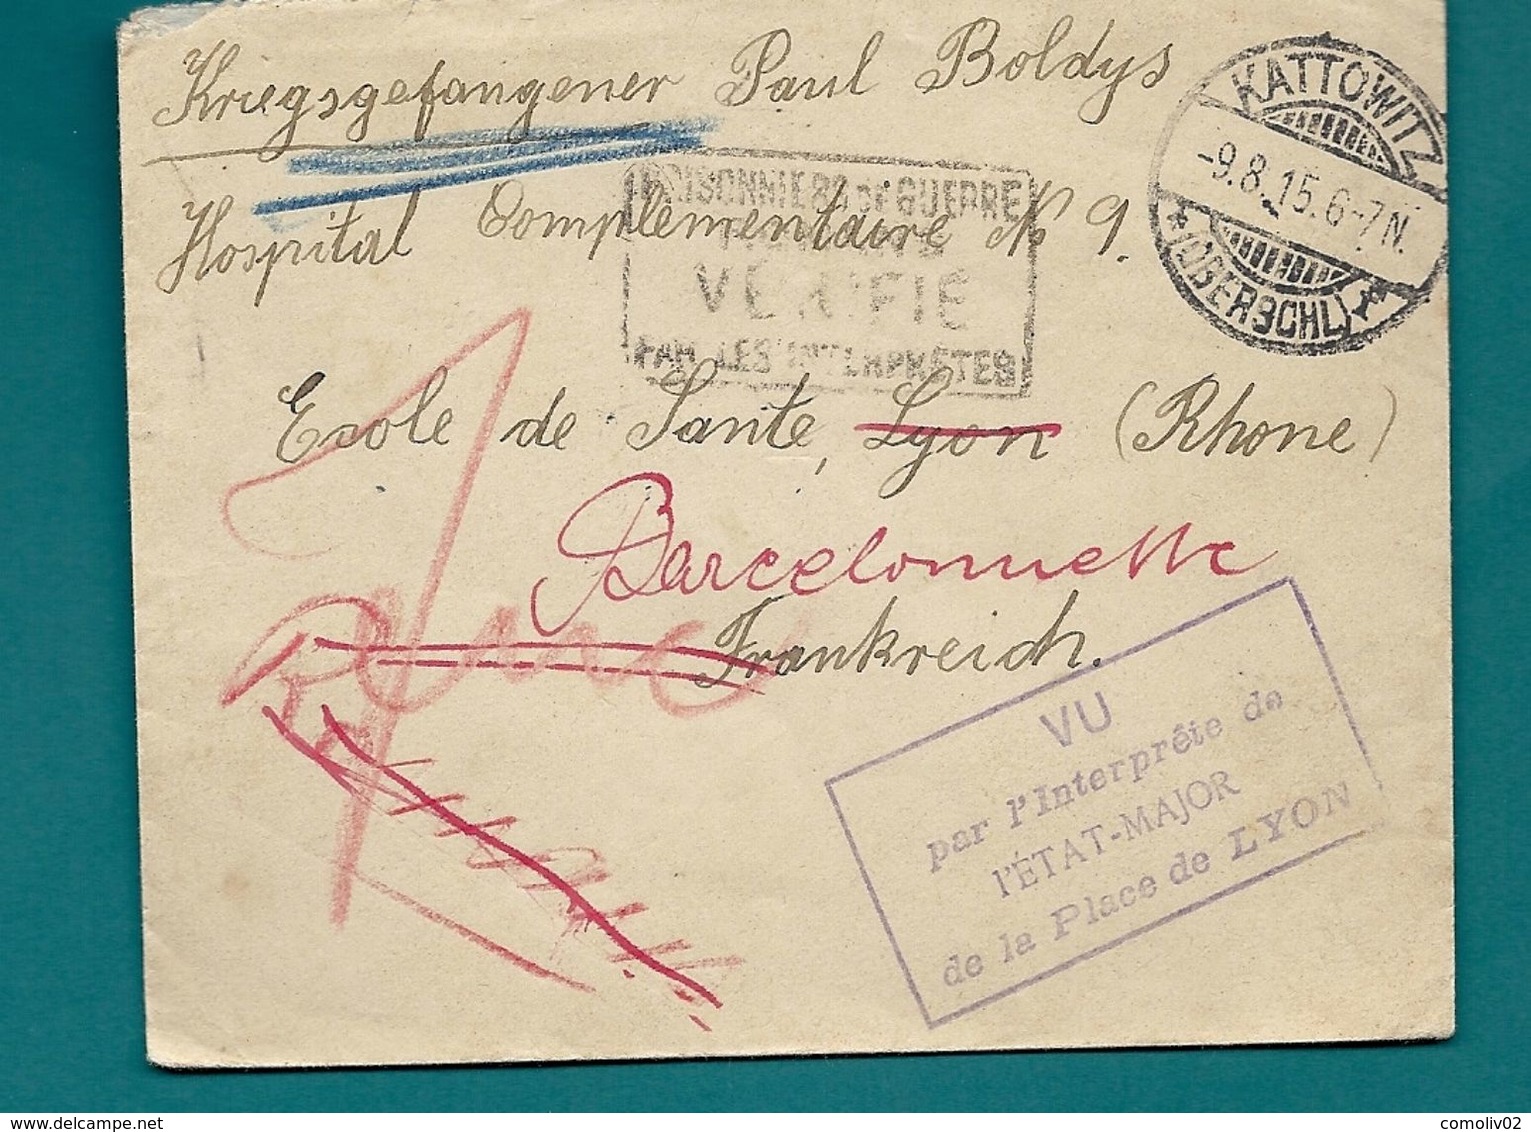 Kriegsgefangener Paul Boldys
KATTOWITZ
-9.8.15.6-7N.
* (OBERSCHL) f *
PRISONNIERS DE GUERRE
VÉRIFIÉ
PAR LES INTERPRÈTES
Hospital Complementaire № 9.
Ecole de Santé, Lyon (Rhone)
Barcelonnette
Frankreich.
VU
par l'Interprête de
l'ÉTAT-MAJOR
de la Place de LYON
comoliv02